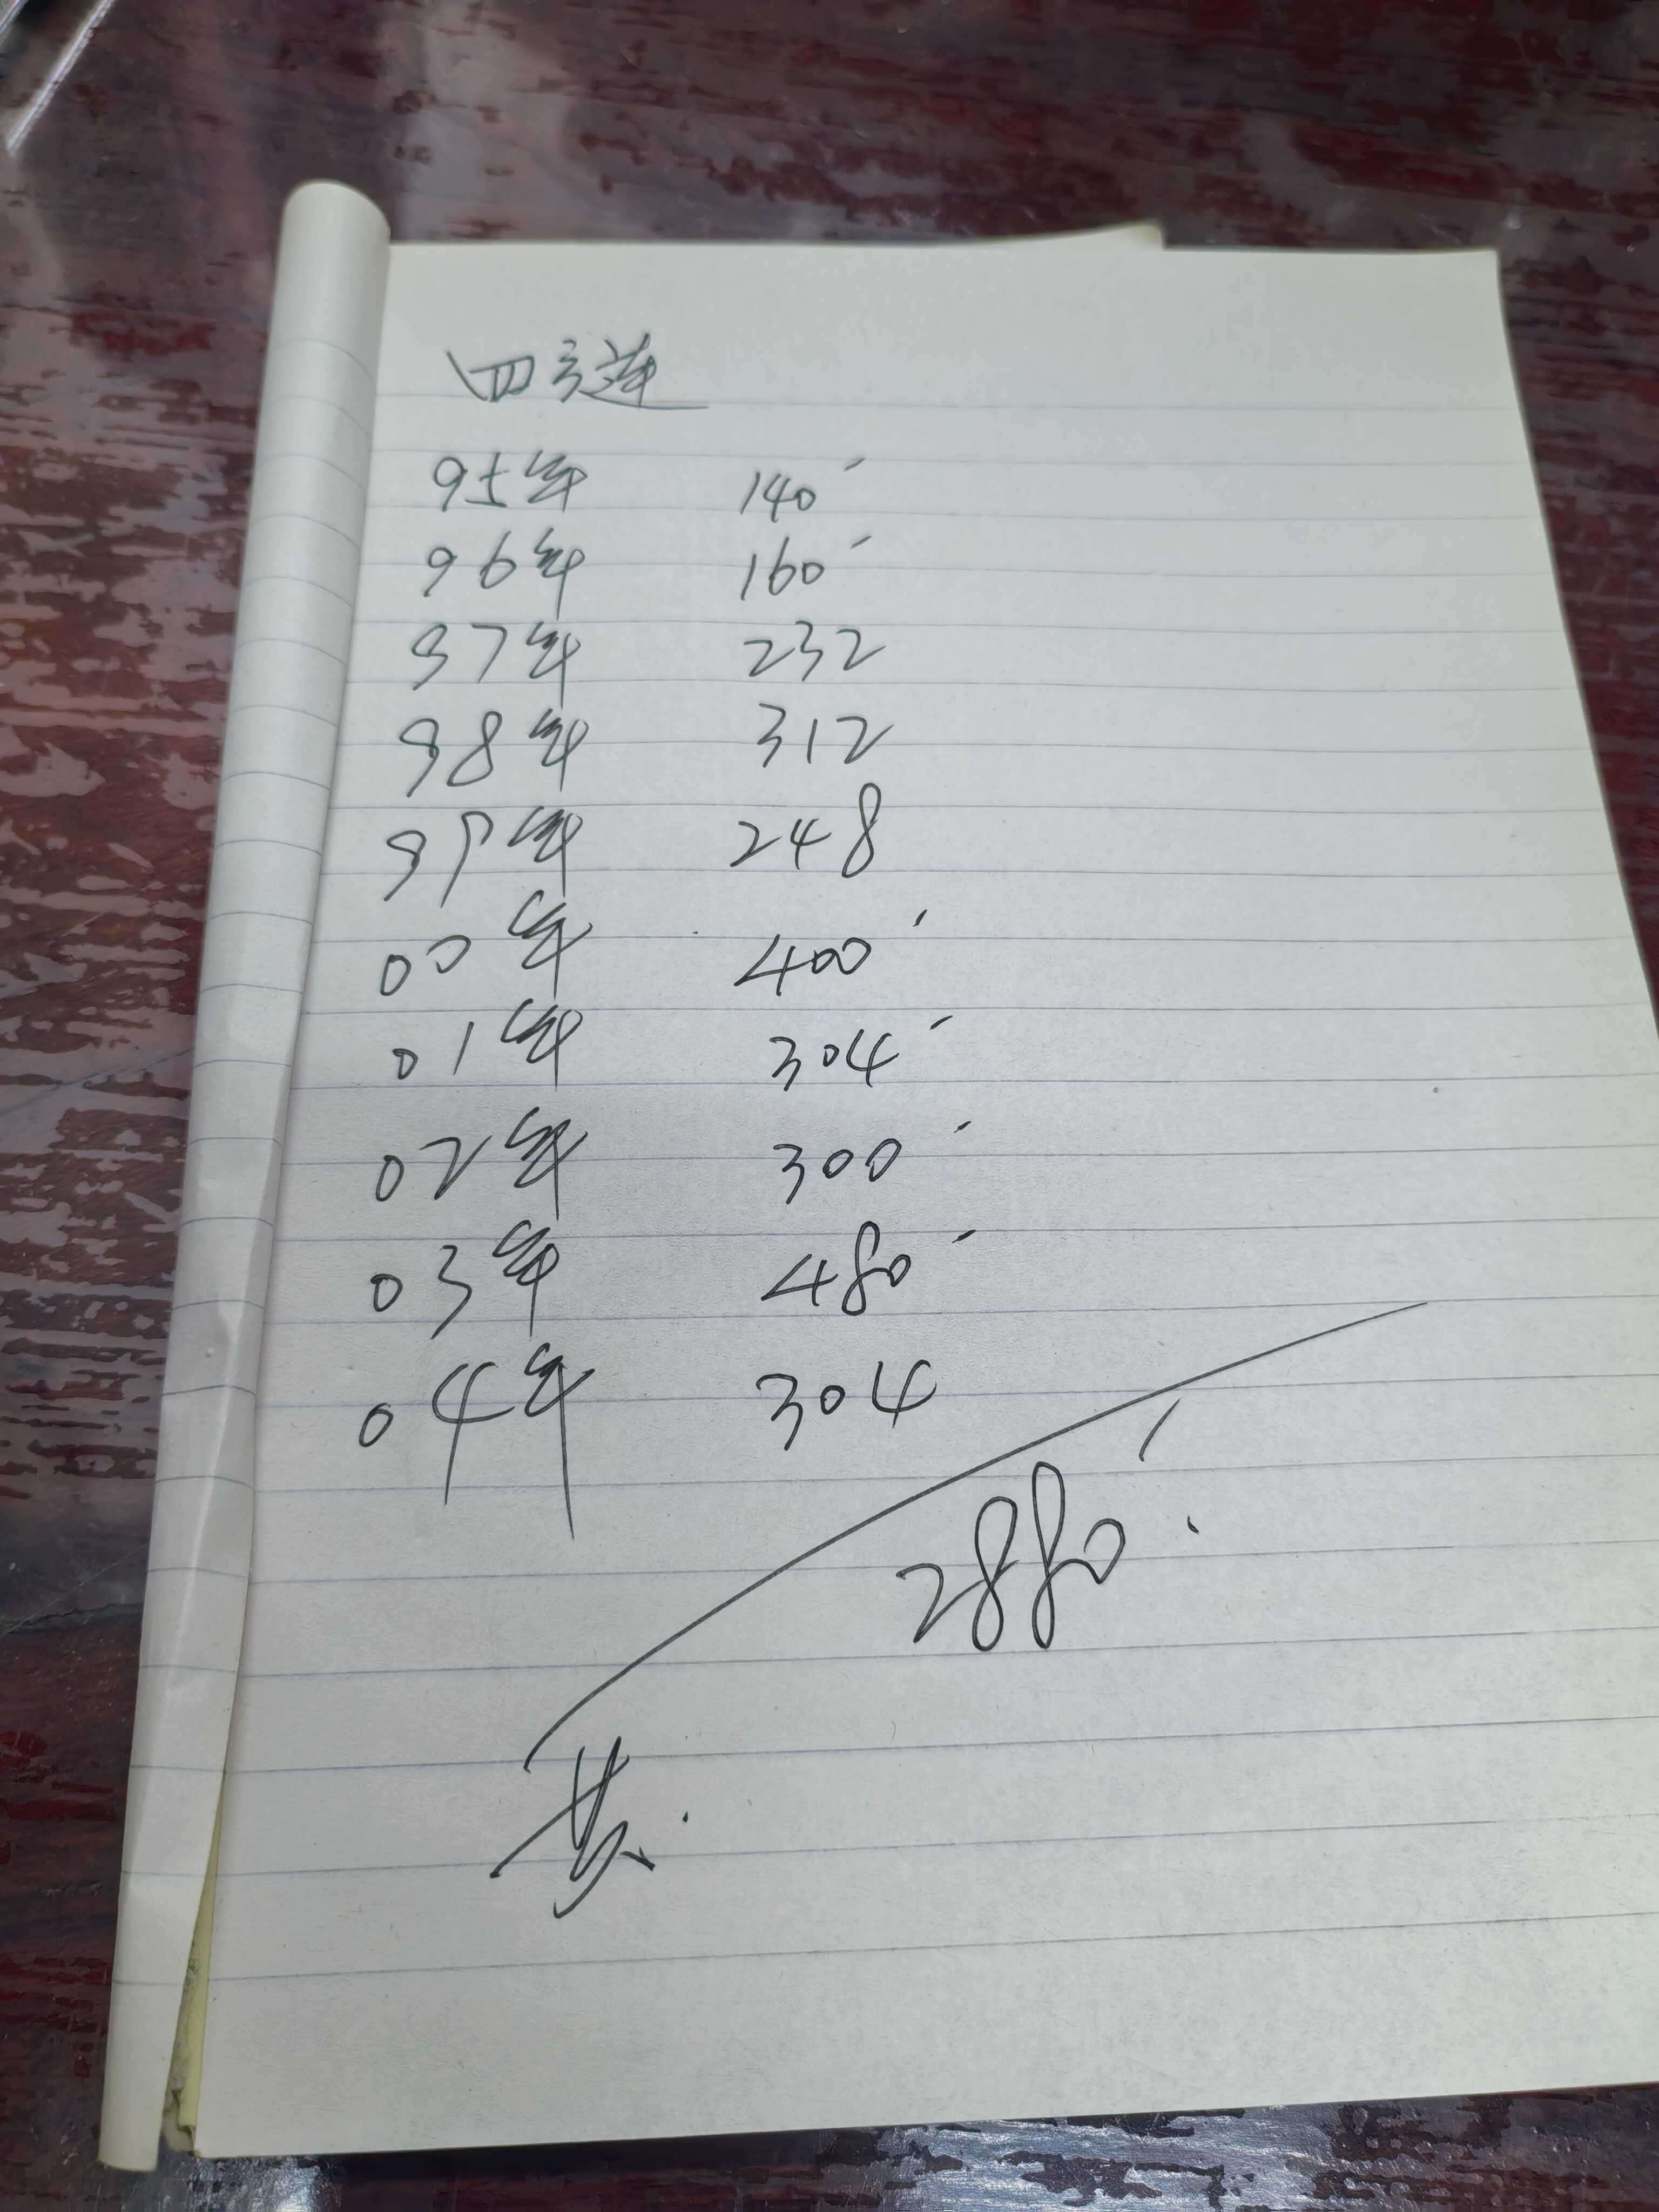 四方莲
95年 140
96年 160
97年 232
98年 312
99年 248
00年 400
01年 304
02年 300
03年 480
04年 304
2880